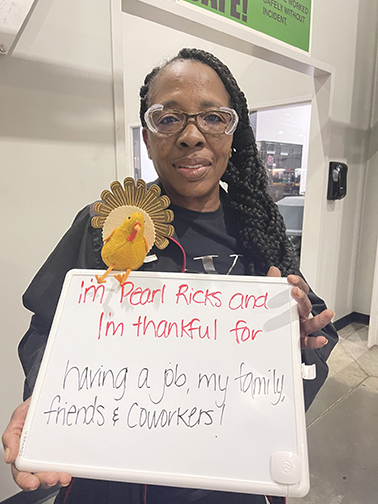 SAFE!
WORKED
SAFELY WITHOUT
INCIDENT.
i'm Pearl Ricks and
I'm thankful for
having a job, my family,
friends & coworkers!